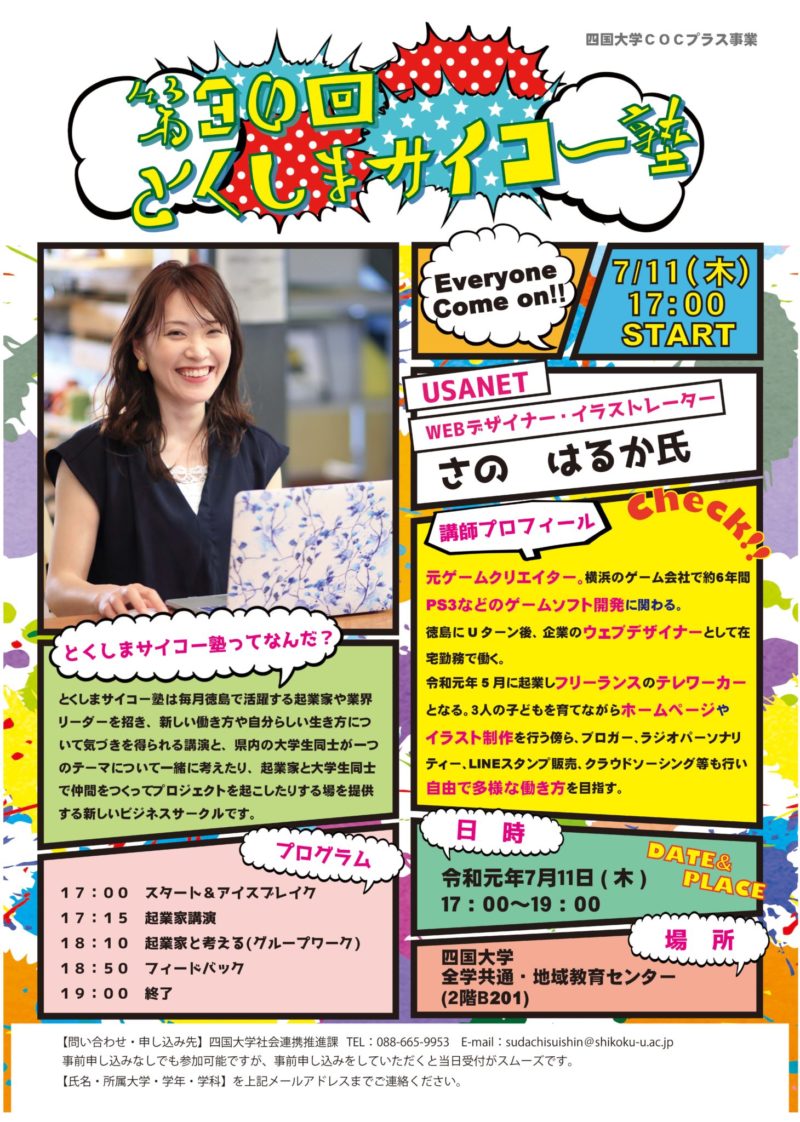 四国大学COCプラス事業
第30回
とくしまサイコー塾
Everyone
Come on!!
7/11(木)
17:00
START
USANET
WEBデザイナー・イラストレーター
さの はるか氏
Check!!
講師プロフィール
元ゲームクリエイター。横浜のゲーム会社で約6年間
PS3などのゲームソフト開発に関わる。
徳島にUターン後、企業のウェブデザイナーとして在
宅勤務で働く。
令和元年5月に起業しフリーランスのテレワーカー
となる。3人の子どもを育てながらホームページや
イラスト制作を行う傍ら、ブロガー、ラジオパーソナリ
ティー、LINEスタンプ販売、クラウドソーシング等も行い
自由で多様な働き方を目指す。
とくしまサイコー塾ってなんだ?
とくしまサイコー塾は毎月徳島で活躍する起業家や業界
リーダーを招き、新しい働き方や自分らしい生き方につ
いて気づきを得られる講演と、県内の大学生同士が一つ
のテーマについて一緒に考えたり、起業家と大学生同士
で仲間をつくってプロジェクトを起こしたりする場を提供
する新しいビジネスサークルです。
プログラム
17:00 スタート&アイスブレイク
17:15 起業家講演
18:10 起業家と考える(グループワーク)
18:50 フィードバック
19:00 終了
日時
DATE&
PLACE
令和元年7月11日(木)
17:00〜19:00
場所
四国大学
全学共通・地域教育センター
(2階B201)
【問い合わせ・申し込み先】四国大学社会連携推進課 TEL:088-665-9953 E-mail:sudachisuishin@shikoku-u.ac.jp
事前申し込みなしでも参加可能ですが、事前申し込みをしていただくと当日受付がスムーズです。
【氏名・所属大学・学年・学科】を上記メールアドレスまでご連絡ください。